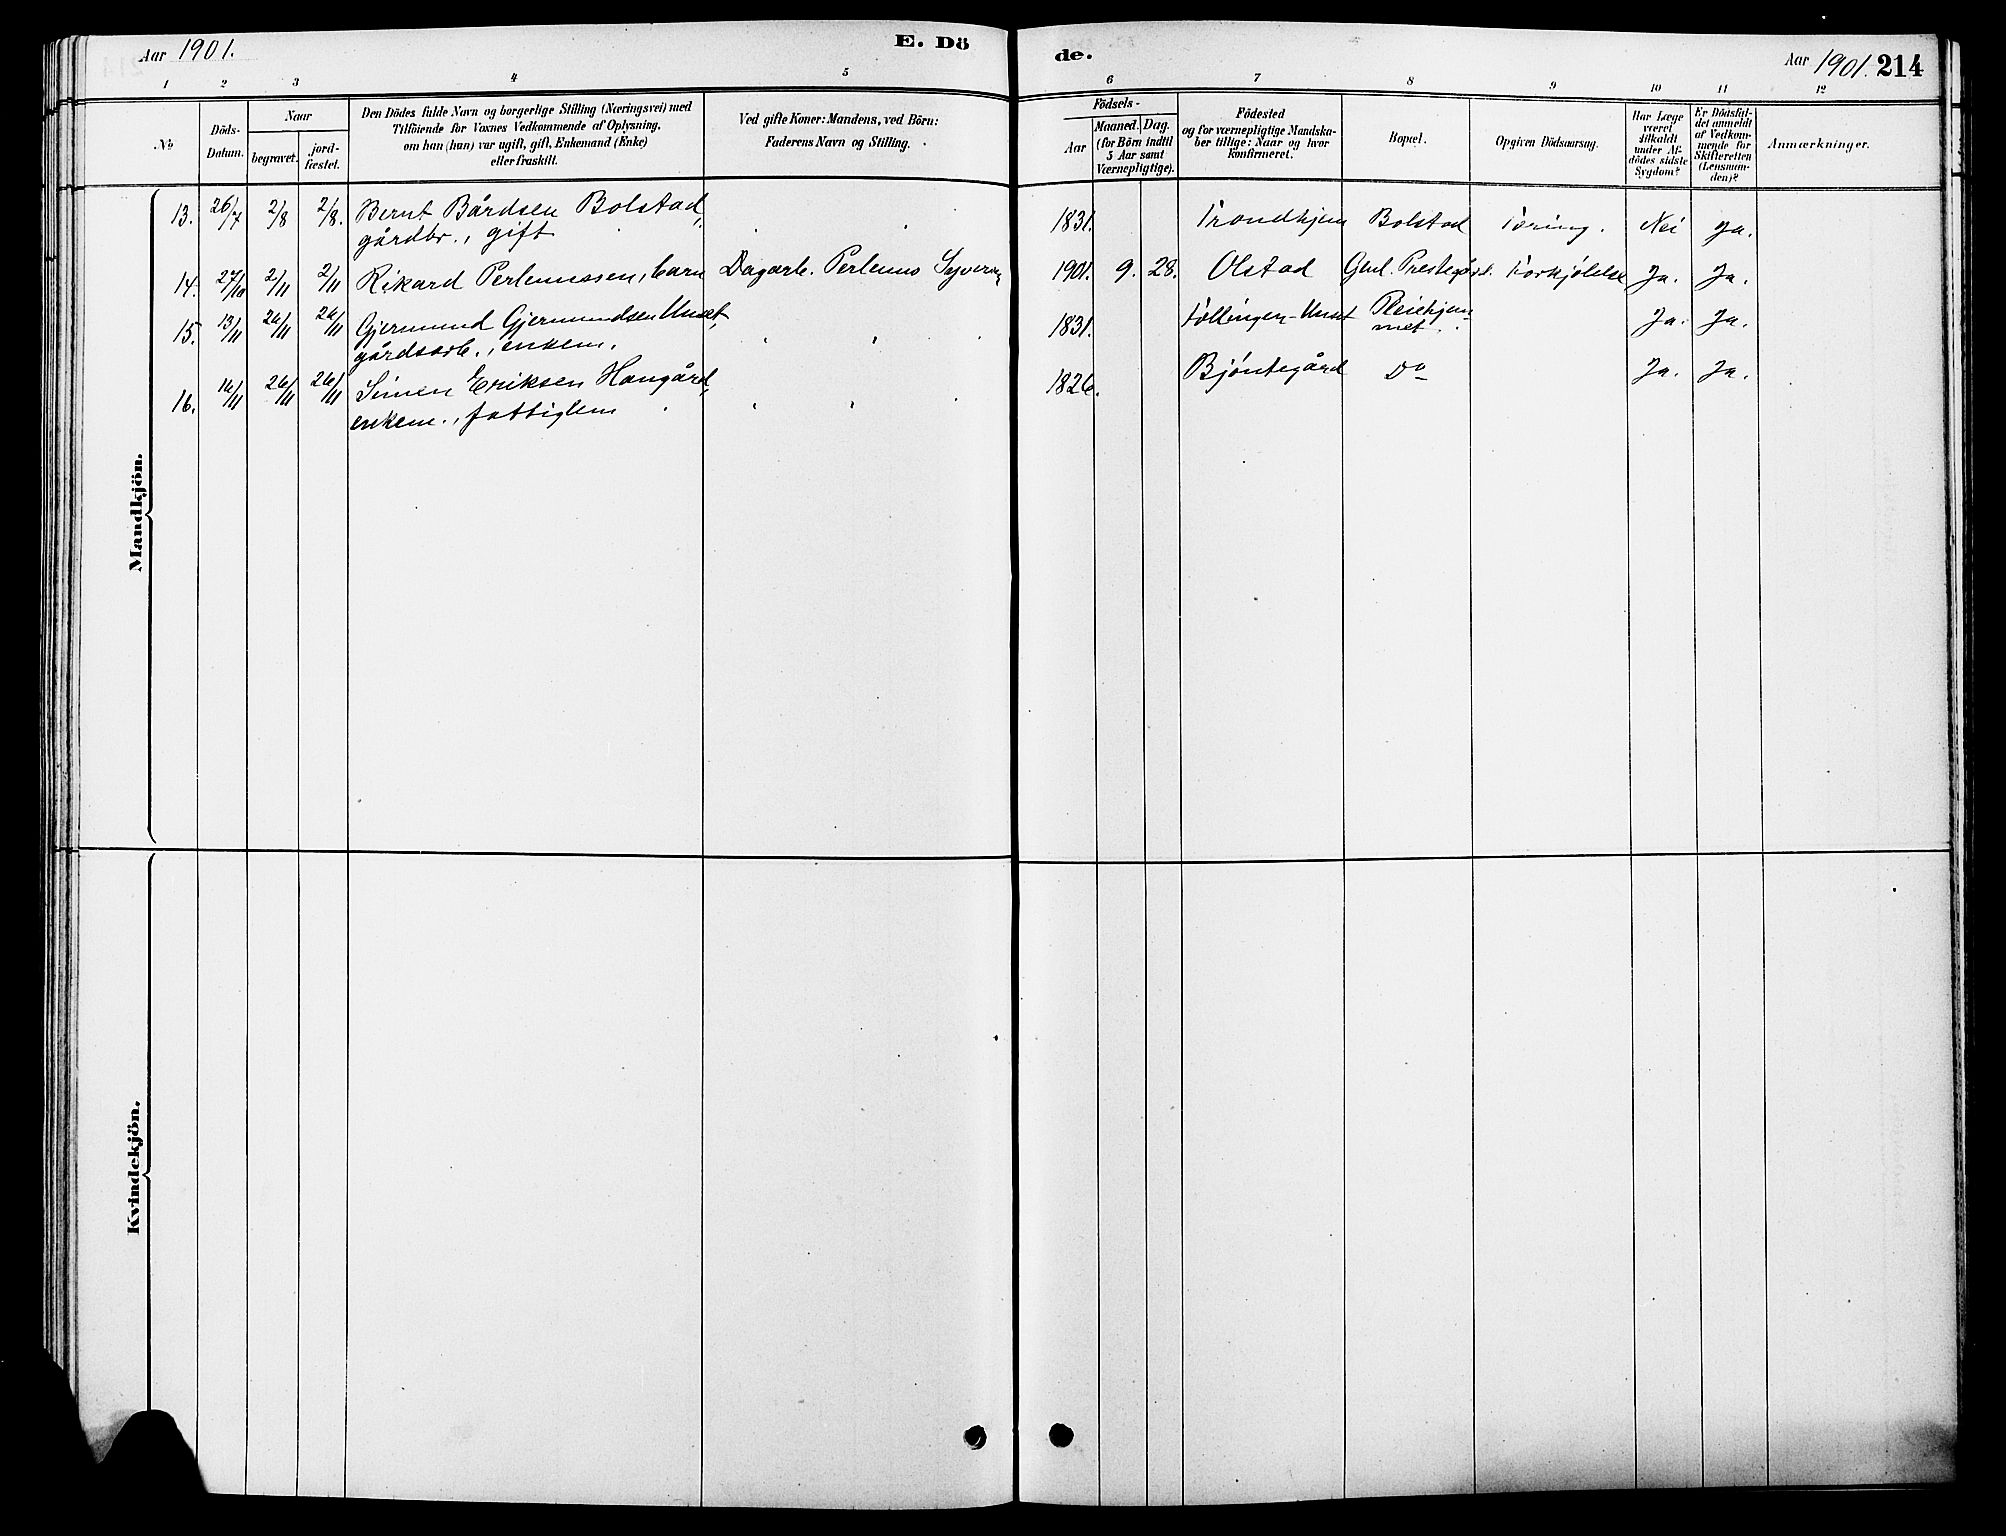 Aar 1901.
E. Dö
de.
Aar 1901. 214
1 2 3 4 5 6 7 8 9 10 11 12
No
Döds-
Datum.
Naar
begravet.
jord-
fæstet.
Den Dödes fulde Navn og borgerlige Stilling (Næringsvei) med
Tilföiende for Voxnes Vedkommende af Oplysning,
om han (hun) var ugift, gift, Enkemand (Enke)
eller fraskilt.
Ved gifte Koner: Mandens, ved Börn:
Faderens Navn og Stilling.
Födsels-
Aar
Maaned. Dag.
(for Börn indtil
5 Aar samt
Værnepligtige).
Födested
og for værnepligtige Mandska-
ber tillige: Naar og hvor
konfirmeret.
Bopæl.
Opgiven Dödsaarsag.
Har Læge
været
tilkaldt
under Af-
dödes sidste
Sygdom?
Er Dödsfal-
det anmeldt
af Vedkom-
mende for
Skifteretten
(Lensman-
den)?
Anmærkninger.
Mandkjön.
13. 26/7 2/8 2/8. Bernt Bårdsen Bolstad, 1831. Trondhjem Bolstad Tæring. Nei Ja.
gårdbr., gift
14. 27/10 2/11 2/11 Rikard Perlennssen, barn Dagarb. Perlenns 1901. 9. 28. Olstad Gml. Prestegård. Forkjølelse Ja. Ja.
15. 13/11 26/11 26/11 Gjermund Gjermundsen Unset, 1831. Follingen-Unset Pleiehjem- Ja. Ja.
gårdsarb., enkem. met.
16. 16/11 26/11 26/11 Simen Eriksen Haugård, 1826. Bjöntegård Do Ja. Ja.
enkem., fattiglem
Kvindekjön.